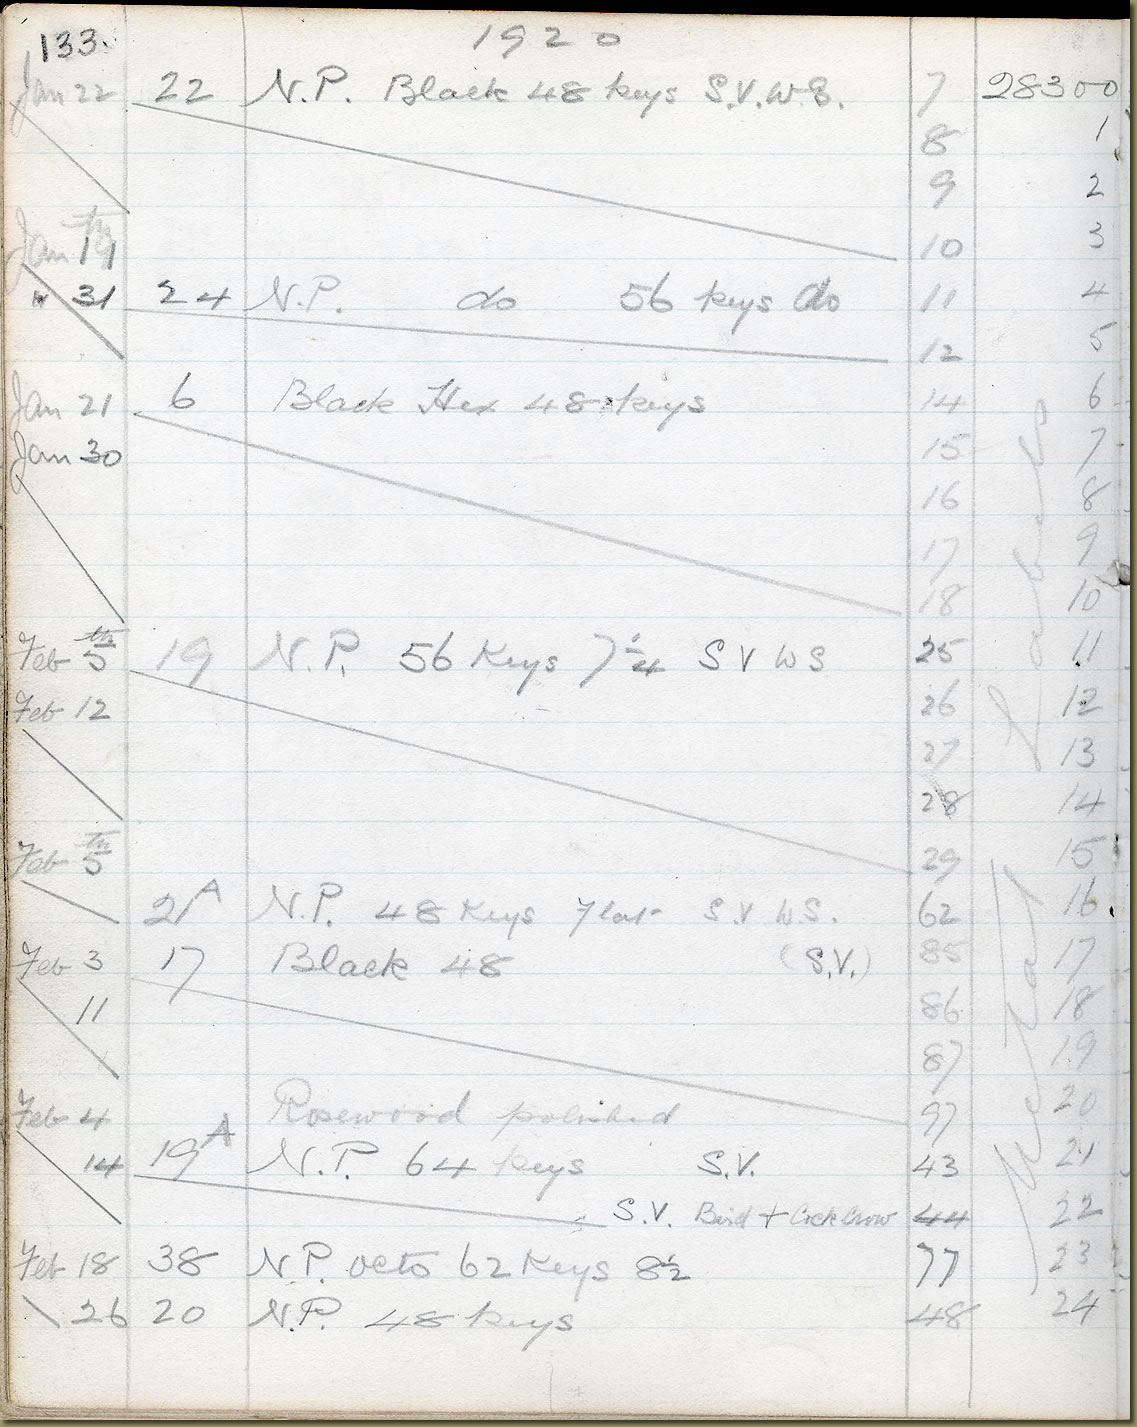 133. 1920
Jan 22 22 N.P. Black 48 keys S.V.W.S. 7 28300
8 1
9 2
Jan 19th 10 3
" 31 24 N.P. do 56 keys do 11 4
12 5
Jan 21 6 Black Hex 48 keys 14 6
Jan 30 15 7
16 8
17 9
18 10
Feb 5th 19 N.P. 56 Keys 7 1/4 S V W S 25 11
Feb 12 26 12
27 13
28 14
Feb 5th 29 15
21A N.P. 48 Keys Flat S.V W S. 62 16
Feb 3 17 Black 48 (S.V.) 85 17
11 86 18
87 19
Feb 4 Rosewood polished 97 20
14 19A N.P. 64 keys S.V. 43 21
S.V. Bird + Cock Crow 44 22
Feb 18 38 N.P. octo 62 Keys 8 1/2 77 23
26 20 N.P. 48 keys 48 24